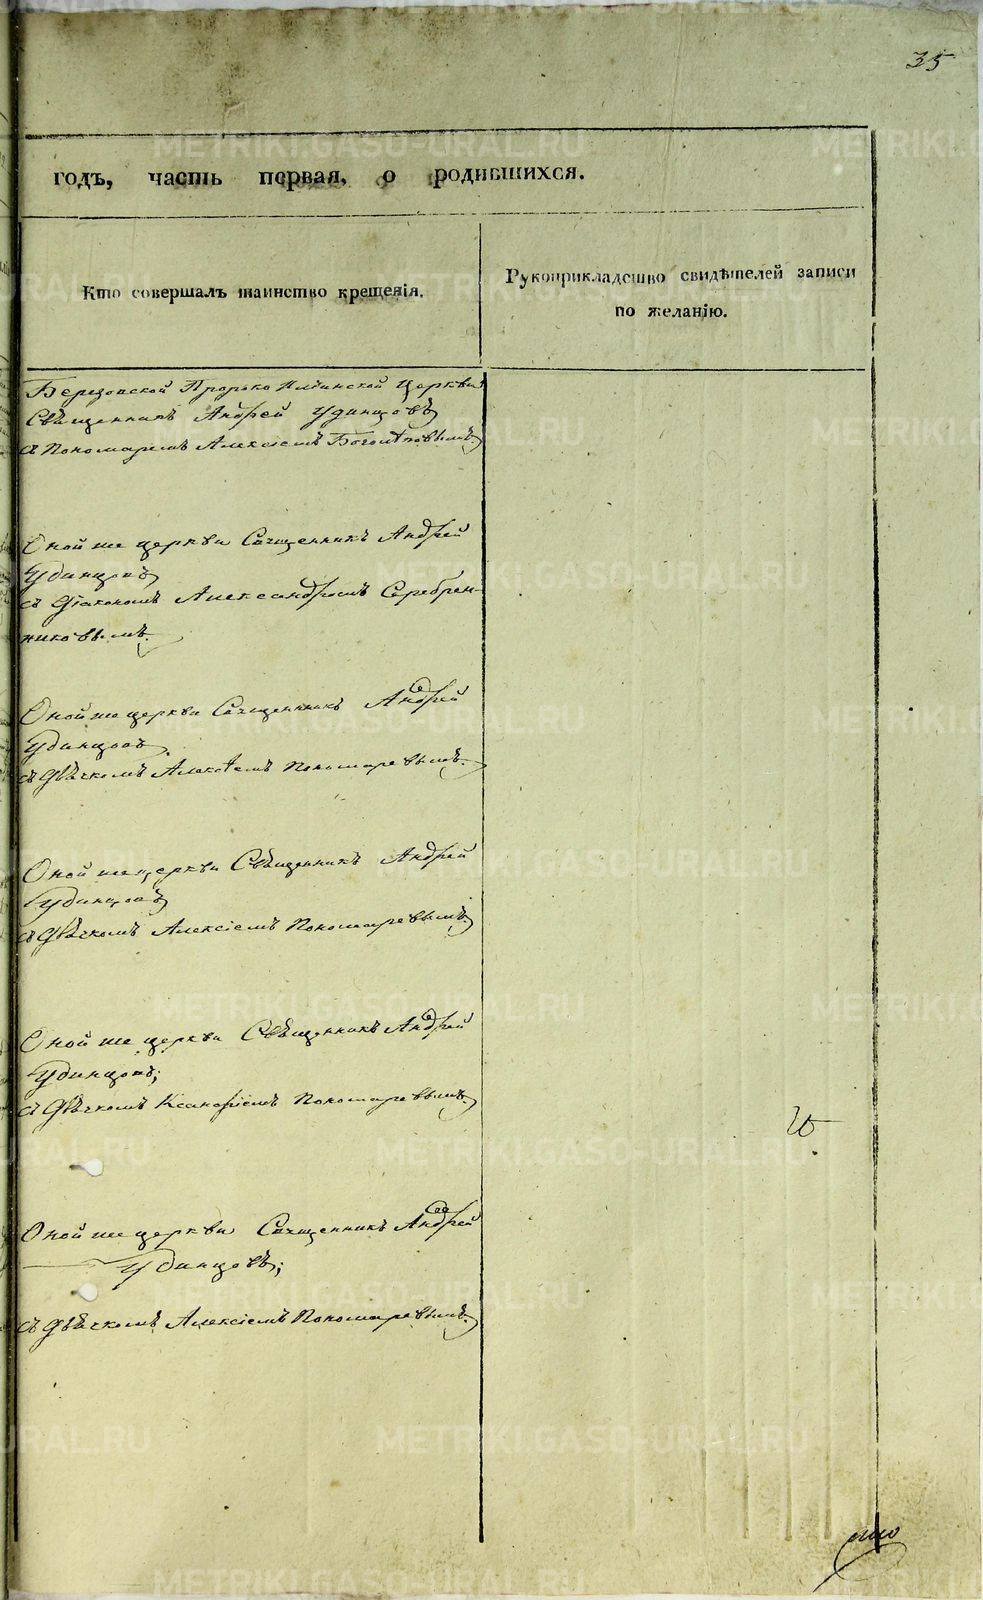 35
годъ, часть первая, о родившихся.
Кто совершалъ таинство крещенія.
Рукоприкладство свидѣтелей записи
по желанію.
Березовской Пророко Ильинской Церкви
Священникъ Андрей Удинцовъ
съ Пономаремъ Алексіемъ Боголѣповымъ.
Оной же церкви Священникъ Андрей
Удинцовъ
съ Діакономъ Александромъ Серебрен-
никовымъ.
Оной же церкви Священникъ Андрей
Удинцовъ
съ Дьячкомъ Алексѣемъ Пономаревымъ.
Оной же церкви Священникъ Андрей
Удинцовъ
съ Дьячкомъ Алексіемъ Пономаревымъ.
Оной же церкви Священникъ Андрей
Удинцовъ;
съ Дьячкомъ Пономаревымъ.
Оной же церкви Священникъ Андрей
Удинцовъ;
съ Дьячкомъ Алексіемъ Пономаревымъ.
METRIKI.GASO-URAL.RU